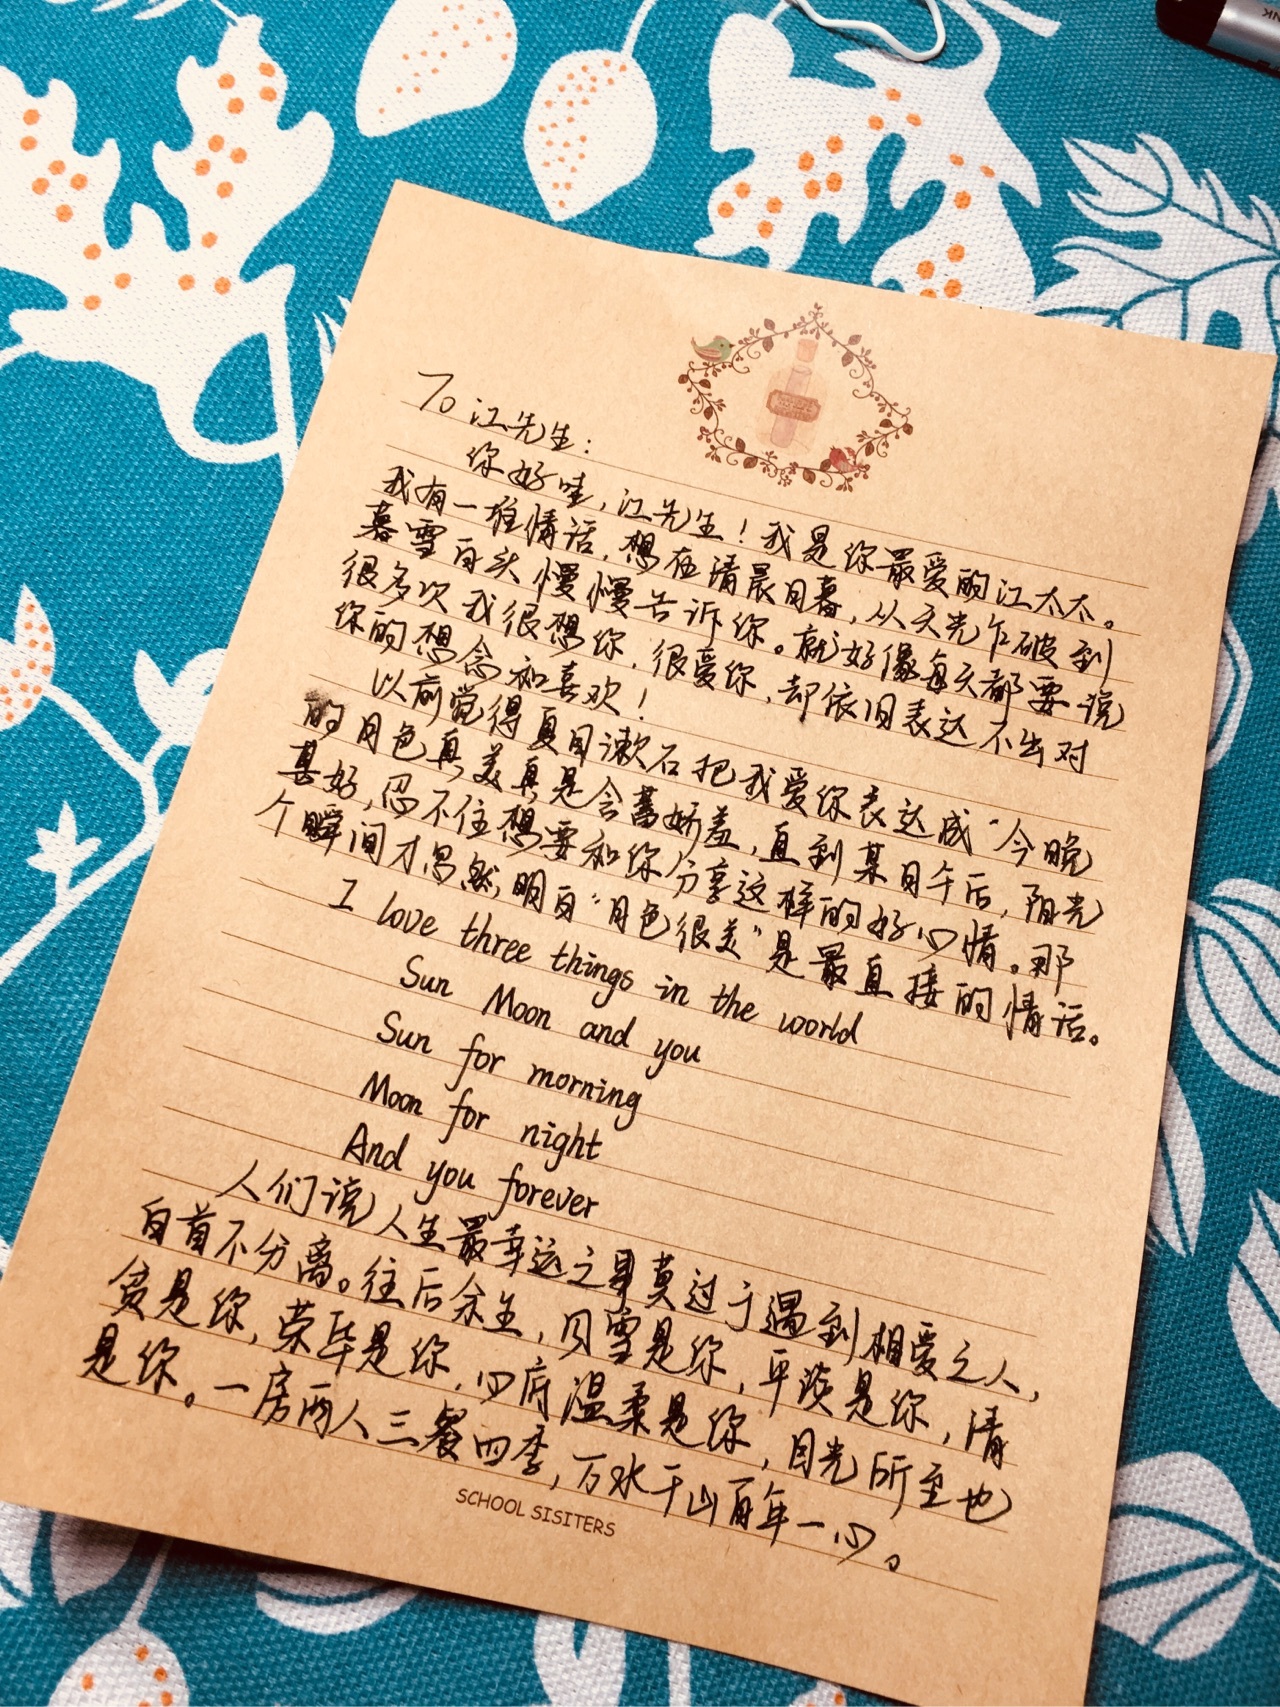 To 江先生:
你好哇，江先生！我是你最爱的江太太。
我有一堆情话，想在清晨日暮，从天光乍破到
暮雪白头慢慢告诉你。就好像每天都要说
很多次我很想你，很爱你，却依旧表达不出对
你的想念和喜欢！
以前觉得夏目漱石把我爱你表达成“今晚
的月色真美真是含蓄娇羞，直到某日午后，阳光
甚好，忍不住想要和你分享这样的好心情。那
个瞬间才忽然明白“月色很美”是最直接的情话。
I love three things in the world
Sun Moon and you
Sun for morning
Moon for night
And you forever
人们说人生最幸运之事莫过于遇到相爱之人，
白首不分离。往后余生，风雪是你，平淡是你，清
贫是你，荣华是你，心底温柔是你，目光所至也
是你。一房两人三餐四季，万水千山百年一心。
SCHOOL SISITERS